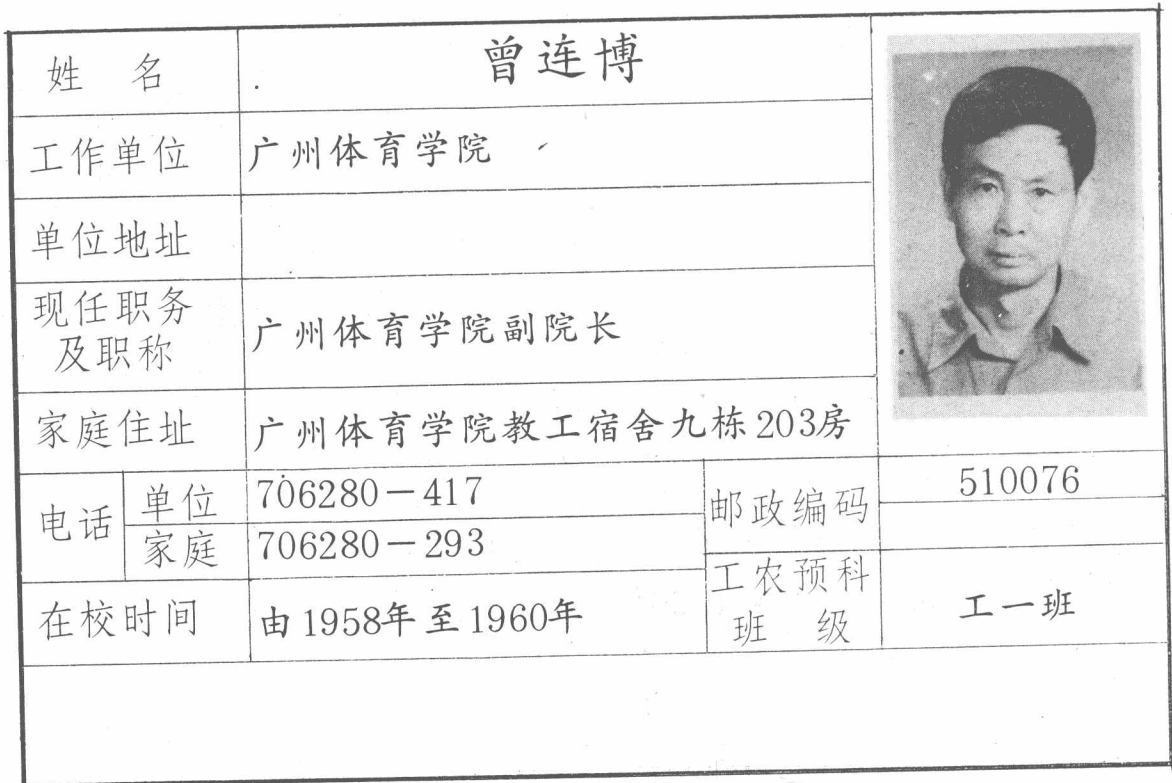 姓 名 曾连博
工作单位 广州体育学院
单位地址
现任职务
及职称 广州体育学院副院长
家庭住址 广州体育学院教工宿舍九栋203房
电话 单位 706280-417 邮政编码 510076
家庭 706280-293
在校时间 由1958年至1960年 工农预科
班 级 工一班